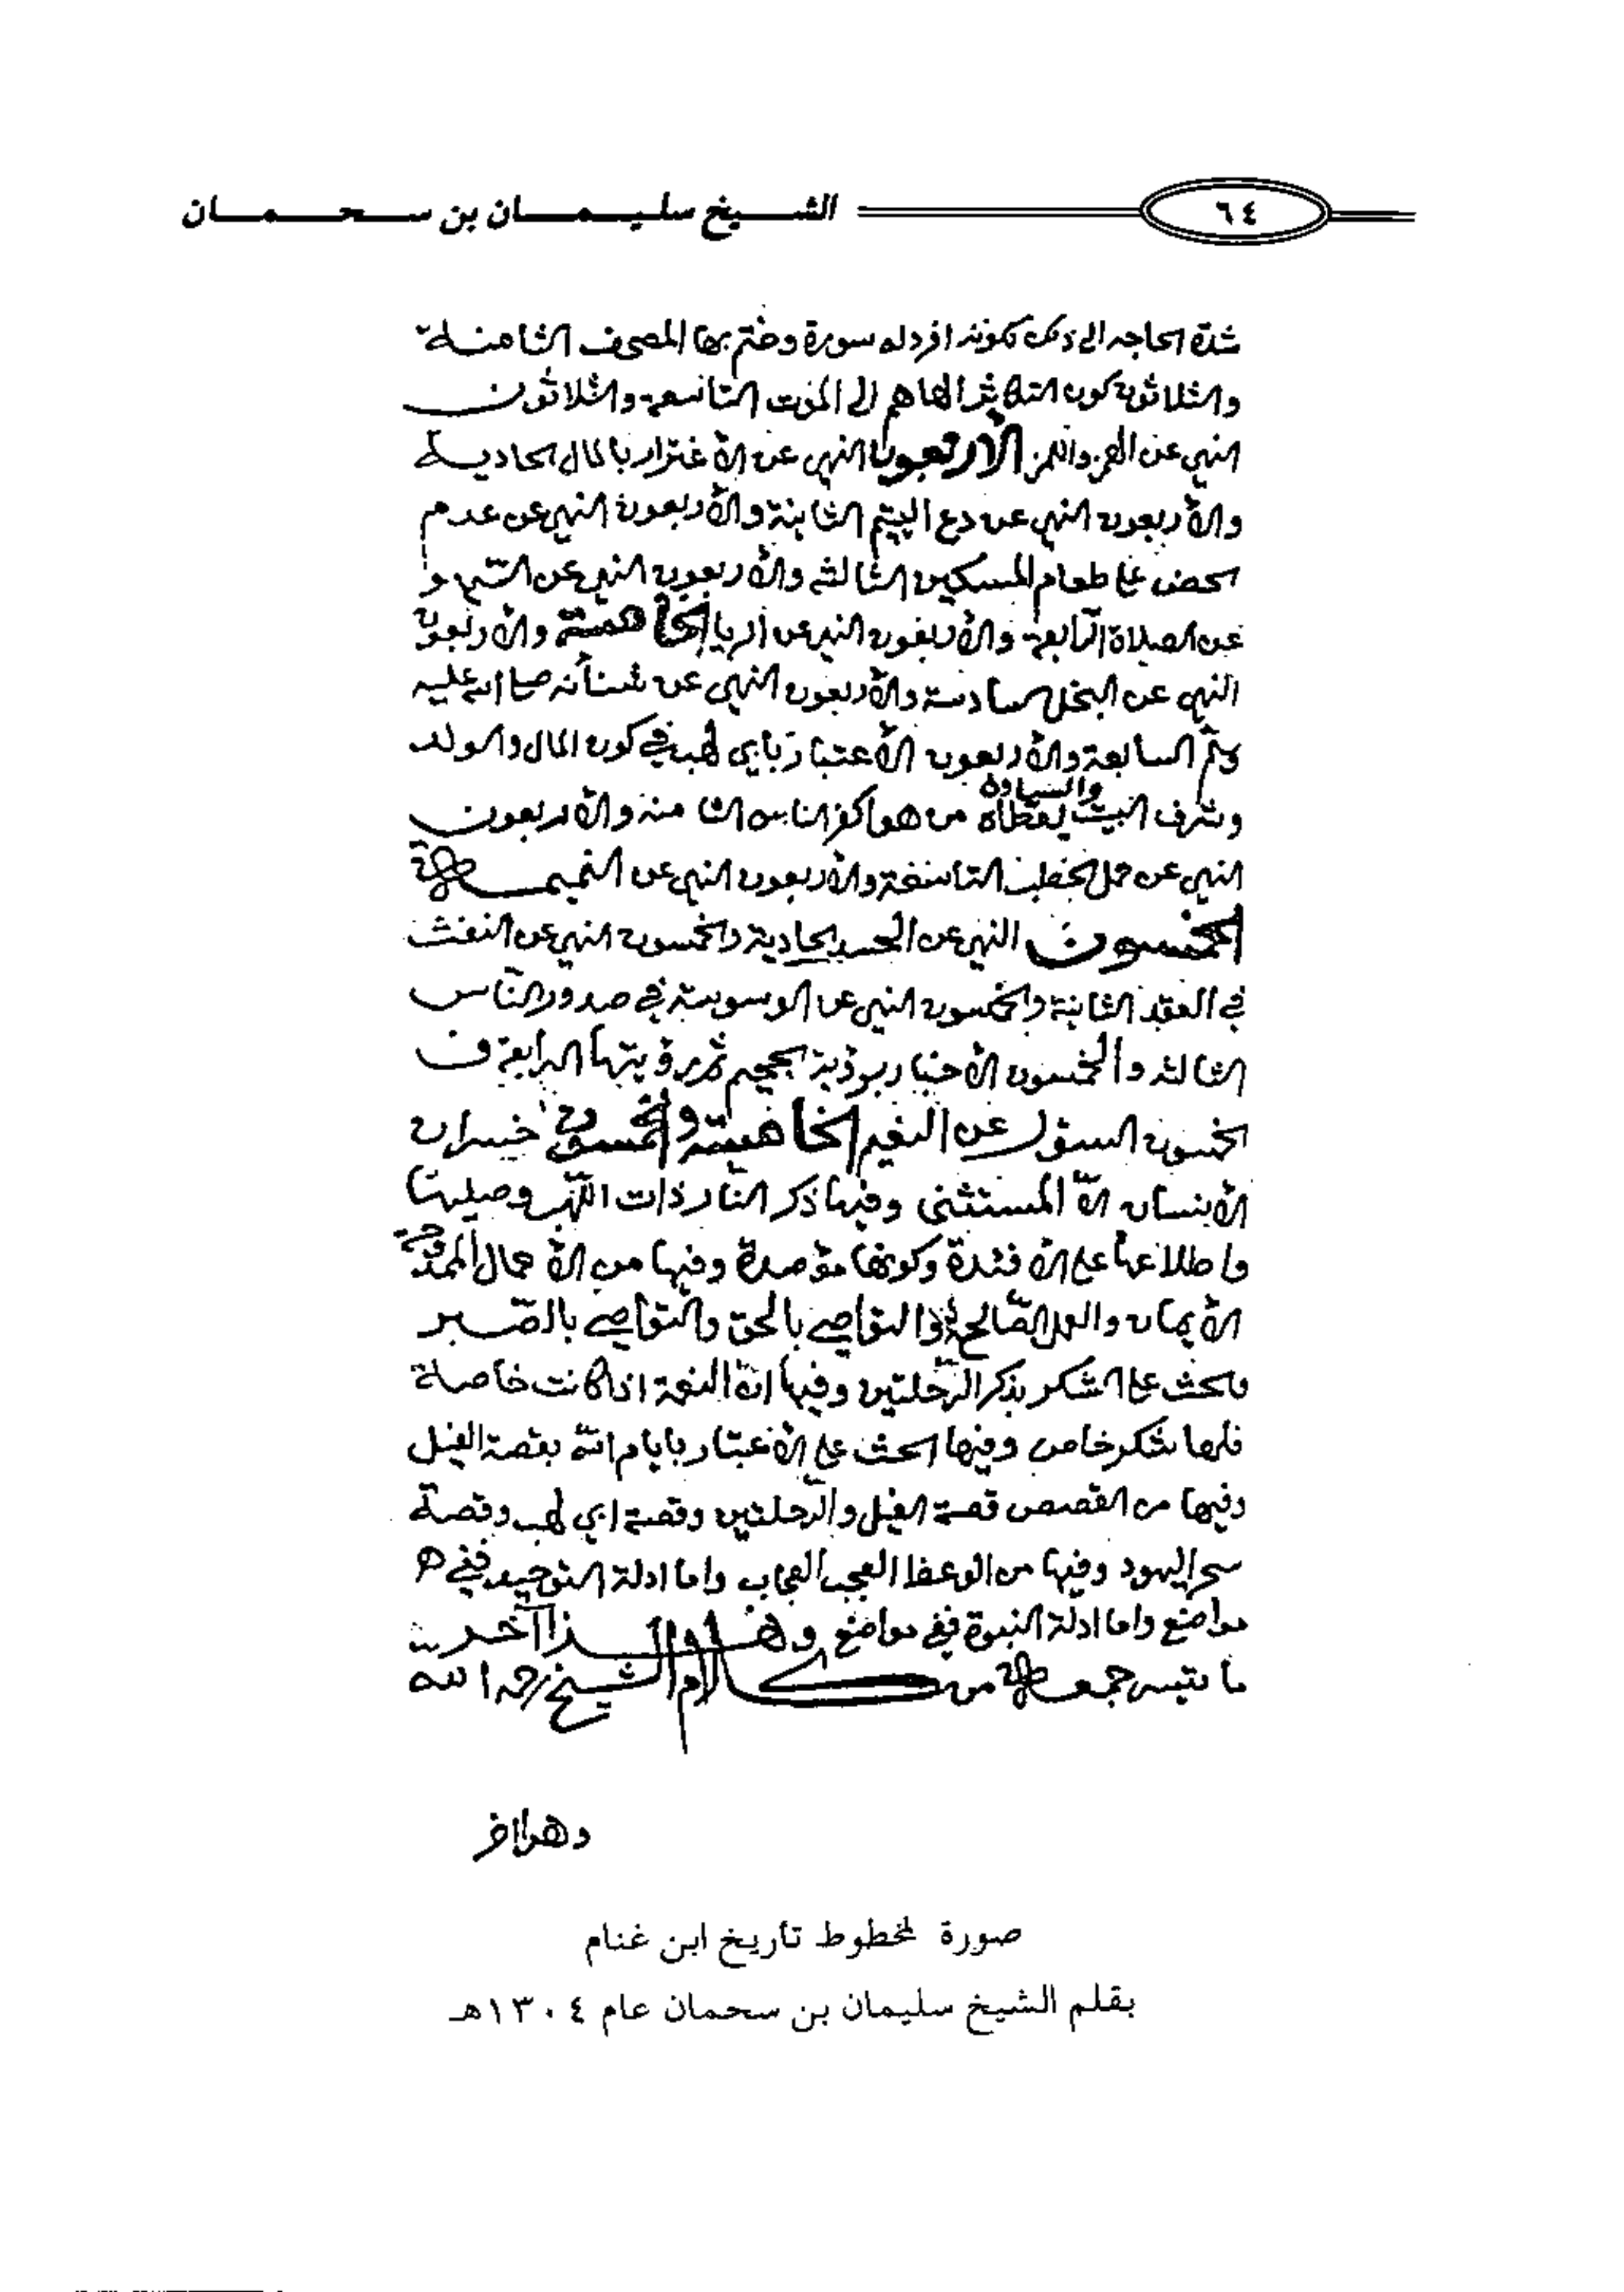 ٦٤ الشيخ سليمان بن سحمان
شدة الحاجه الى ذلك لكونه افرد له سورة وختم بها المصحف الثامنـة
والثلاثون كون التكاثر الهاهم الى الموت التاسعة والثلاثون
النهي عن الهمز واللمز الأربعون النهي عن الاغترار بالمال الحادية
والأربعون النهي عن دع اليتيم الثانية والأربعون النهي عن عدم
الحض على طعام المسكين الثالثة والأربعون النهي عن السهو
عن الصلاة الرابعة والأربعون النهي عن الريا الخامسة والأربعون
النهي عن البخل السادسة والأربعون النهي عن شنأنه صلى الله عليه
وسلم السابعة والأربعون الأعتبار بأبي لهب في كون المال والولد
وشرف البيت والسيادة من هو اكفر الناس الثامنة والأربعون
النهي عن حمل الحطب التاسعة والأربعون النهي عن النميمة
الخمسون النهي عن الحسد الحادية والخمسون النهي عن النفث
في العقد الثانية والخمسون النهي عن الوسوسة في صدور الناس
الثالثه والخمسون الأخبار برؤية الجحيم ثم رؤيتها الرابعة
الخمسون السؤل عن النعيم الخامسة والخمسون خسران
الأنسان الا المستثنى وفيها ذكر النار ذات اللهب وصليها
واطلاعها على الأفئدة وكونها مؤصدة وفيها من الأعمال
الأيمان والعمل الصالح والتواصي بالحق والتواصي بالصبر
والحث على الشكر بذكر الرحلتين وفيها ان النعمة اذا كانت خاصة
فلها شكر خاص وفيها الحث على الأعتبار بايام الله بقصة الفيل
وفيها من القصص قصة الفيل والرحلتين وقصة ابي لهب وقصة
سحر اليهود وفيها من الوعظ العجب العجاب واما ادلة التوحيد ففي
مواضع واما ادلة النبوة ففي مواضع وهذا آخر
ما تيسر جمعه من كلام الشيخ رحمه الله
صورة لمخطوط تأريخ ابن غنام
بقلم الشيخ سليمان بن سحمان عام ١٣٠٤هـ